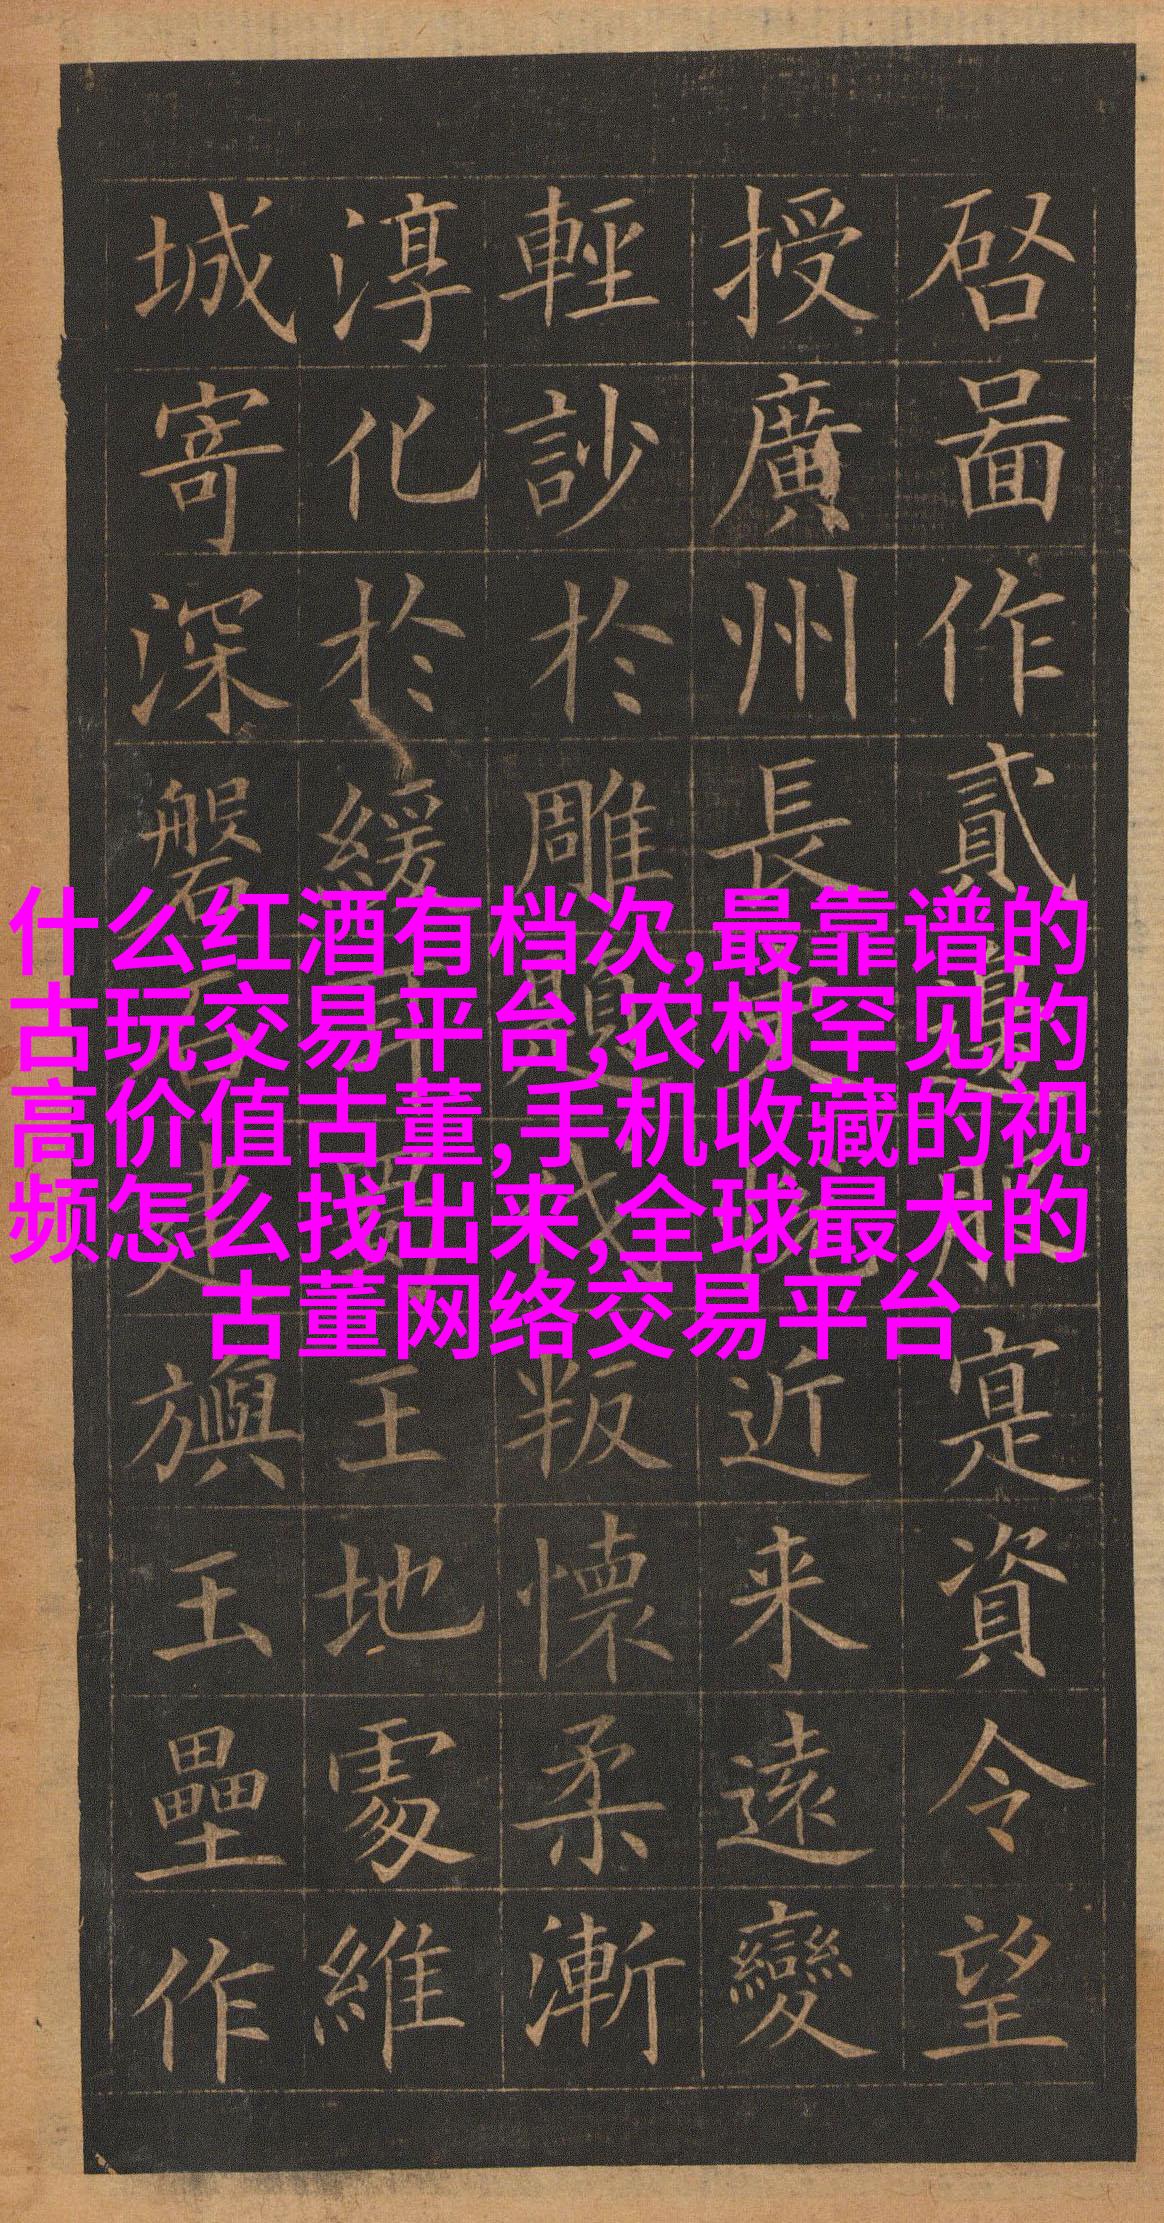 什么红酒有档次,最靠谱的
古玩交易平台,农村罕见的
高价值古董,手机收藏的视
频怎么找出来,全球最大的
古董网络交易平台
啚作貳服寔資令望
授廣州長史近来遠變
輕訬於雕題叛懷柔漸
淳化於緩耳王地處維
城寄深磐石建旟玉壘作